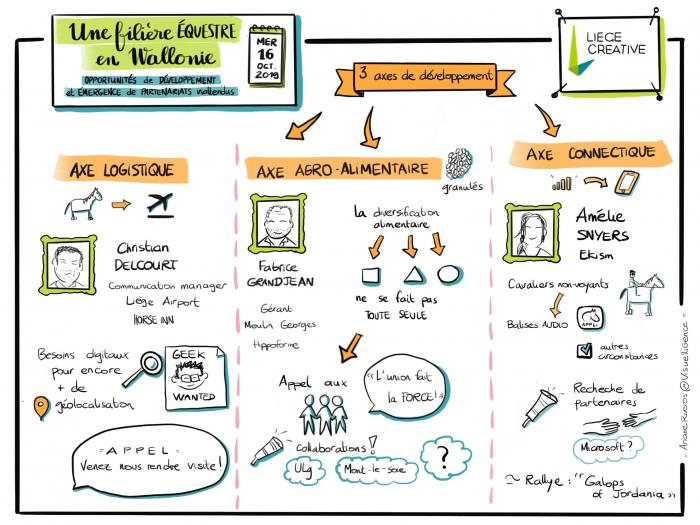 Une filière ÉQUESTRE
en Wallonie
OPPORTUNITÉS de DÉVELOPPEMENT
et ÉMERGENCE de PARTENARIATS inattendus
MER
16
OCT.
2019
3 axes de développement
LIEGE
CREATIVE
AXE LOGISTIQUE
Christian
DELCOURT
Communication manager
Liège Airport
HORSE INN
Besoins digitaux
pour encore
+ de
géolocalisation
GEEK
WANTED
= APPEL =
Venez nous rendre visite!
AXE AGRO-ALIMENTAIRE
granulés
Fabrice
GRANDJEAN
Gérant
Moulin Georges
Hippoforme
la diversification
alimentaire
ne se fait pas
TOUTE SEULE
Appel aux
collaborations!
"L'union fait
la FORCE!"
ULg
Mont-le-soie
?
AXE CONNECTIQUE
Amélie
SNYERS
Ekism
Cavaliers non voyants
Balises AUDIO
APPLI
autres
circonstances
Recherche de
partenaires
Microsoft?
Rallye: "Galops
of Jordania"
- Ariane Rueros @Visuelligence -